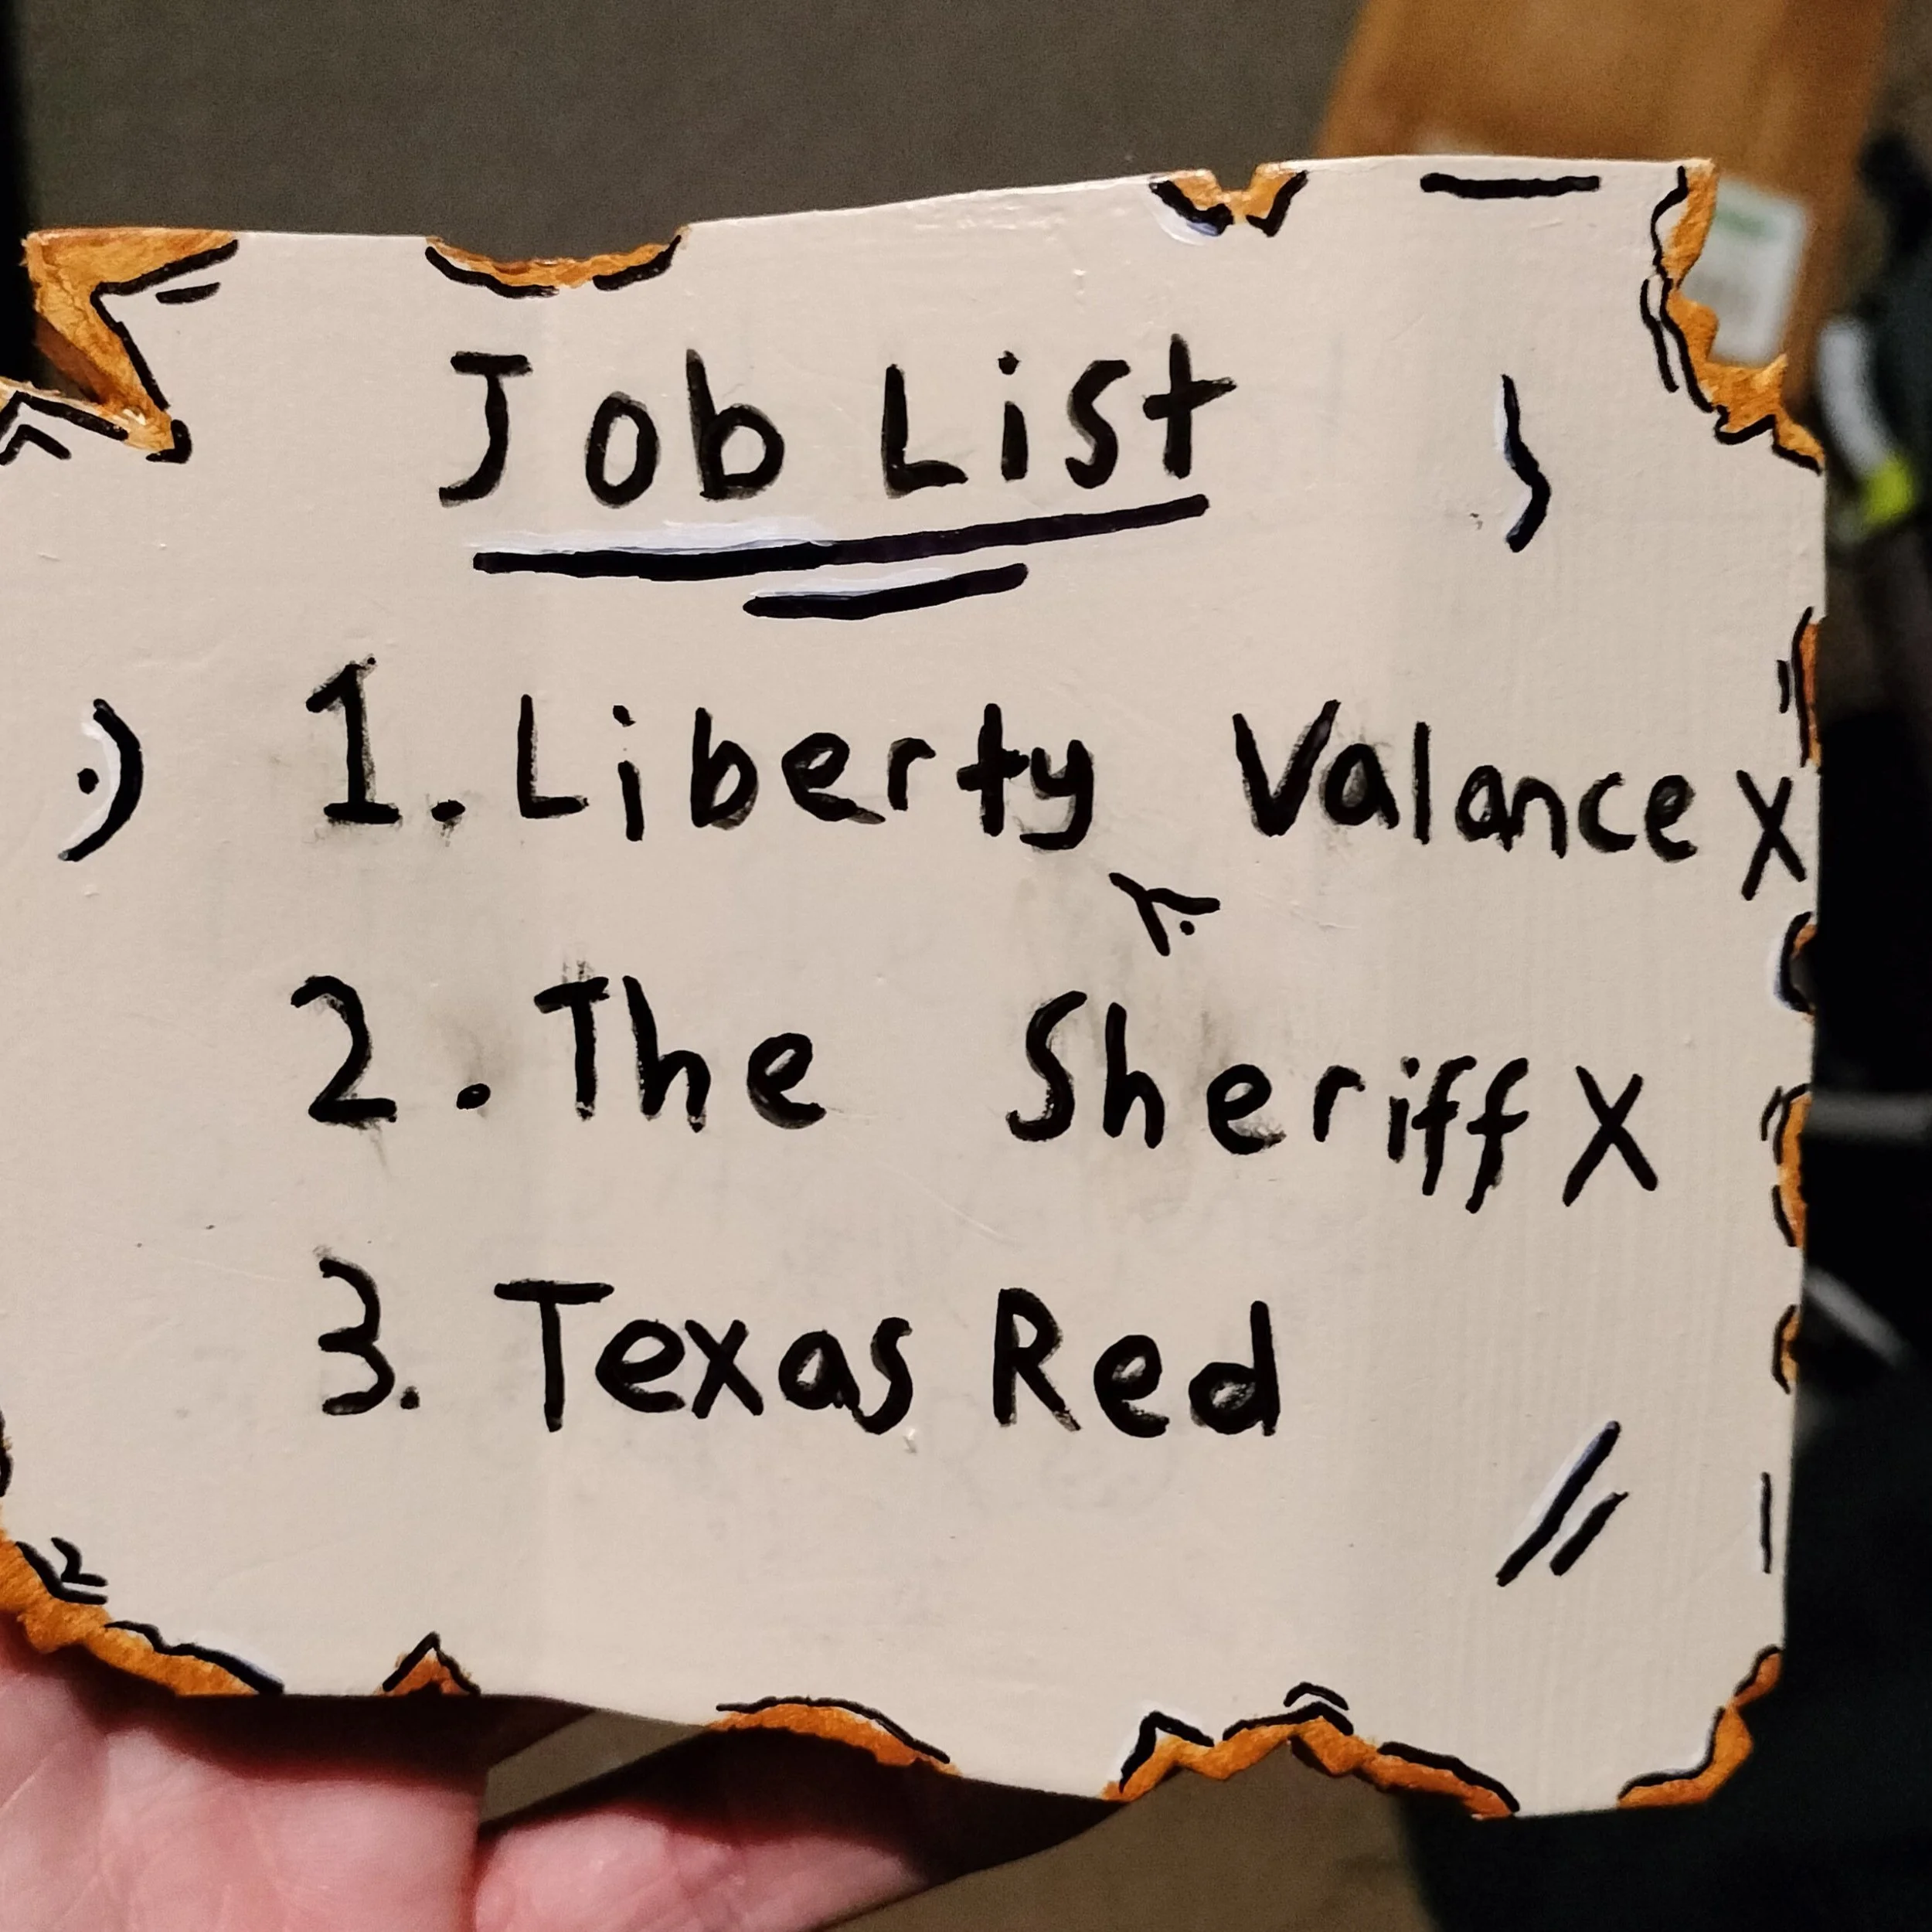 Job List
1. Liberty Valance X
2. The Sheriff X
3. Texas Red